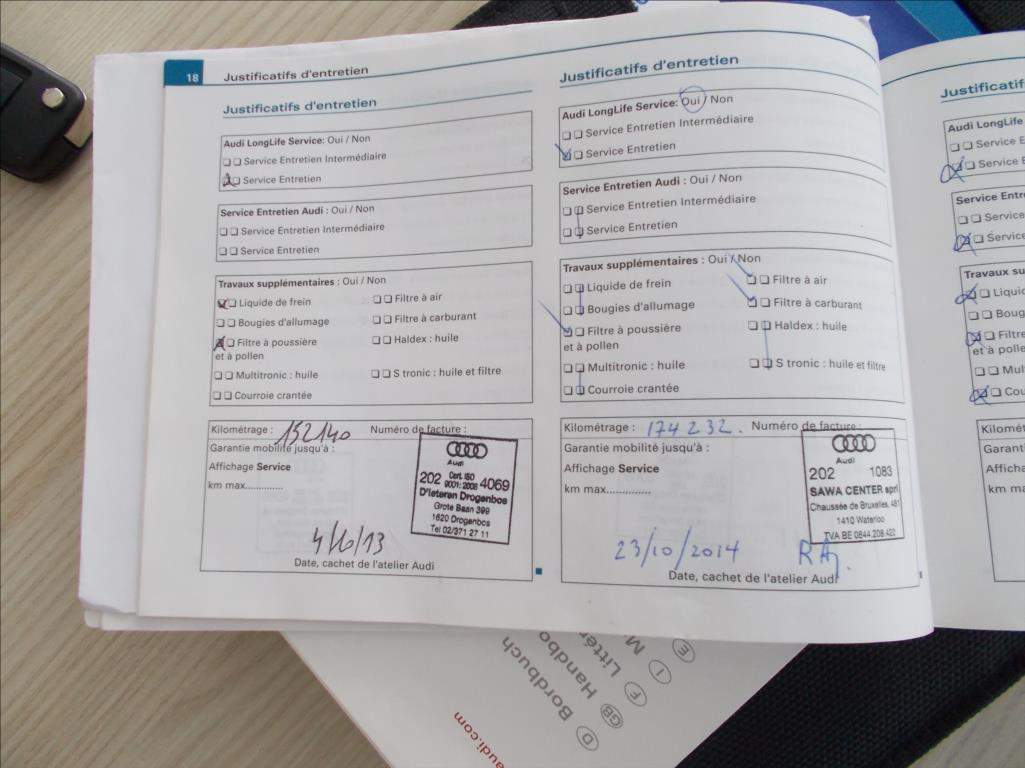 18 Justificatifs d'entretien
Justificatifs d'entretien
Audi LongLife Service: Oui / Non
Service Entretien Intermédiaire
Service Entretien
Service Entretien Audi : Oui / Non
Service Entretien Intermédiaire
Service Entretien
Travaux supplémentaires : Oui / Non
Liquide de frein
Filtre à air
Bougies d'allumage
Filtre à carburant
Filtre à poussière
et à pollen
Haldex : huile
Multitronic : huile
S tronic : huile et filtre
Courroie crantée
Kilométrage : 152140 Numéro de facture :
Garantie mobilité jusqu'à :
Affichage Service
km max.............
Audi
Cert. ISO
202 9001: 2008 4069
D'Ieteren Drogenbos
Grote Baan 399
1620 Drogenbos
Tel 02/371 27 11
Date, cachet de l'atelier Audi
Justificatifs d'entretien
Audi LongLife Service: Oui / Non
Service Entretien Intermédiaire
Service Entretien
Service Entretien Audi : Oui / Non
Service Entretien Intermédiaire
Service Entretien
Travaux supplémentaires : Oui / Non
Liquide de frein
Filtre à air
Bougies d'allumage
Filtre à carburant
Filtre à poussière
et à pollen
Haldex : huile
Multitronic : huile
S tronic : huile et filtre
Courroie crantée
Kilométrage : 174232. Numéro de facture :
Garantie mobilité jusqu'à :
Affichage Service
km max.............
Audi
202 1083
SAWA CENTER sprl
Chaussée de Bruxelles,
1410 Waterloo
TVA BE 0844.208.422
23/10/2014
Date, cachet de l'atelier Audi
Justificatifs
Audi LongLife
Service E
Service E
Service Entre
Service
Service
Travaux su
Liquid
Boug
Filtre
et à polle
Mul
Cou
Kilomét
Garant
Affich
km m
D Bordbuch
GB Handbo
F Litté
I M
E
audi.com